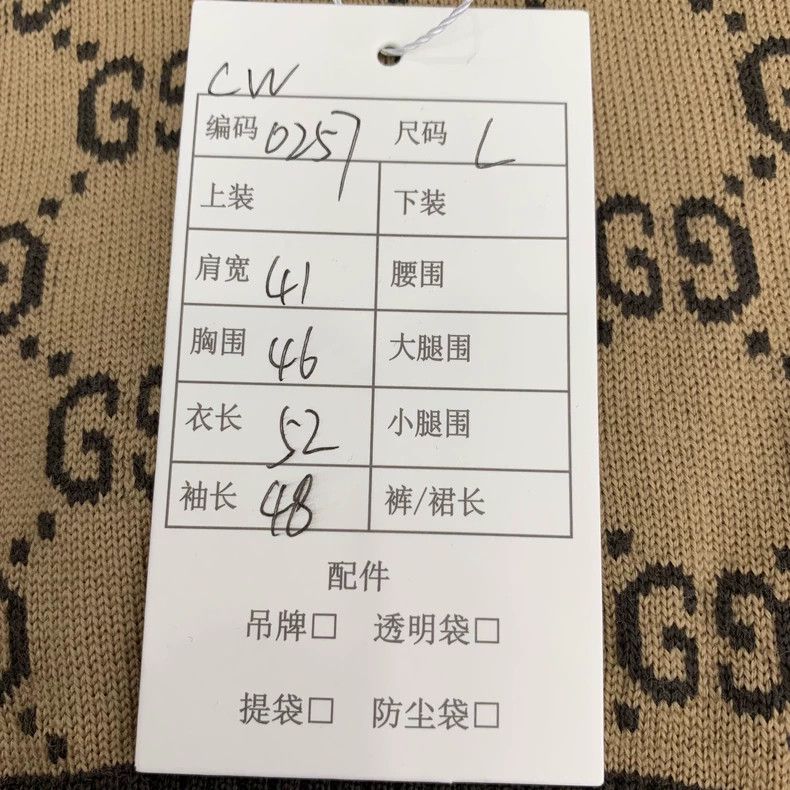 CW
编码 0257 尺码 L
上装 下装
肩宽 41 腰围
胸围 46 大腿围
衣长 52 小腿围
袖长 48 裤/裙长
配件
吊牌□ 透明袋□
提袋□ 防尘袋□